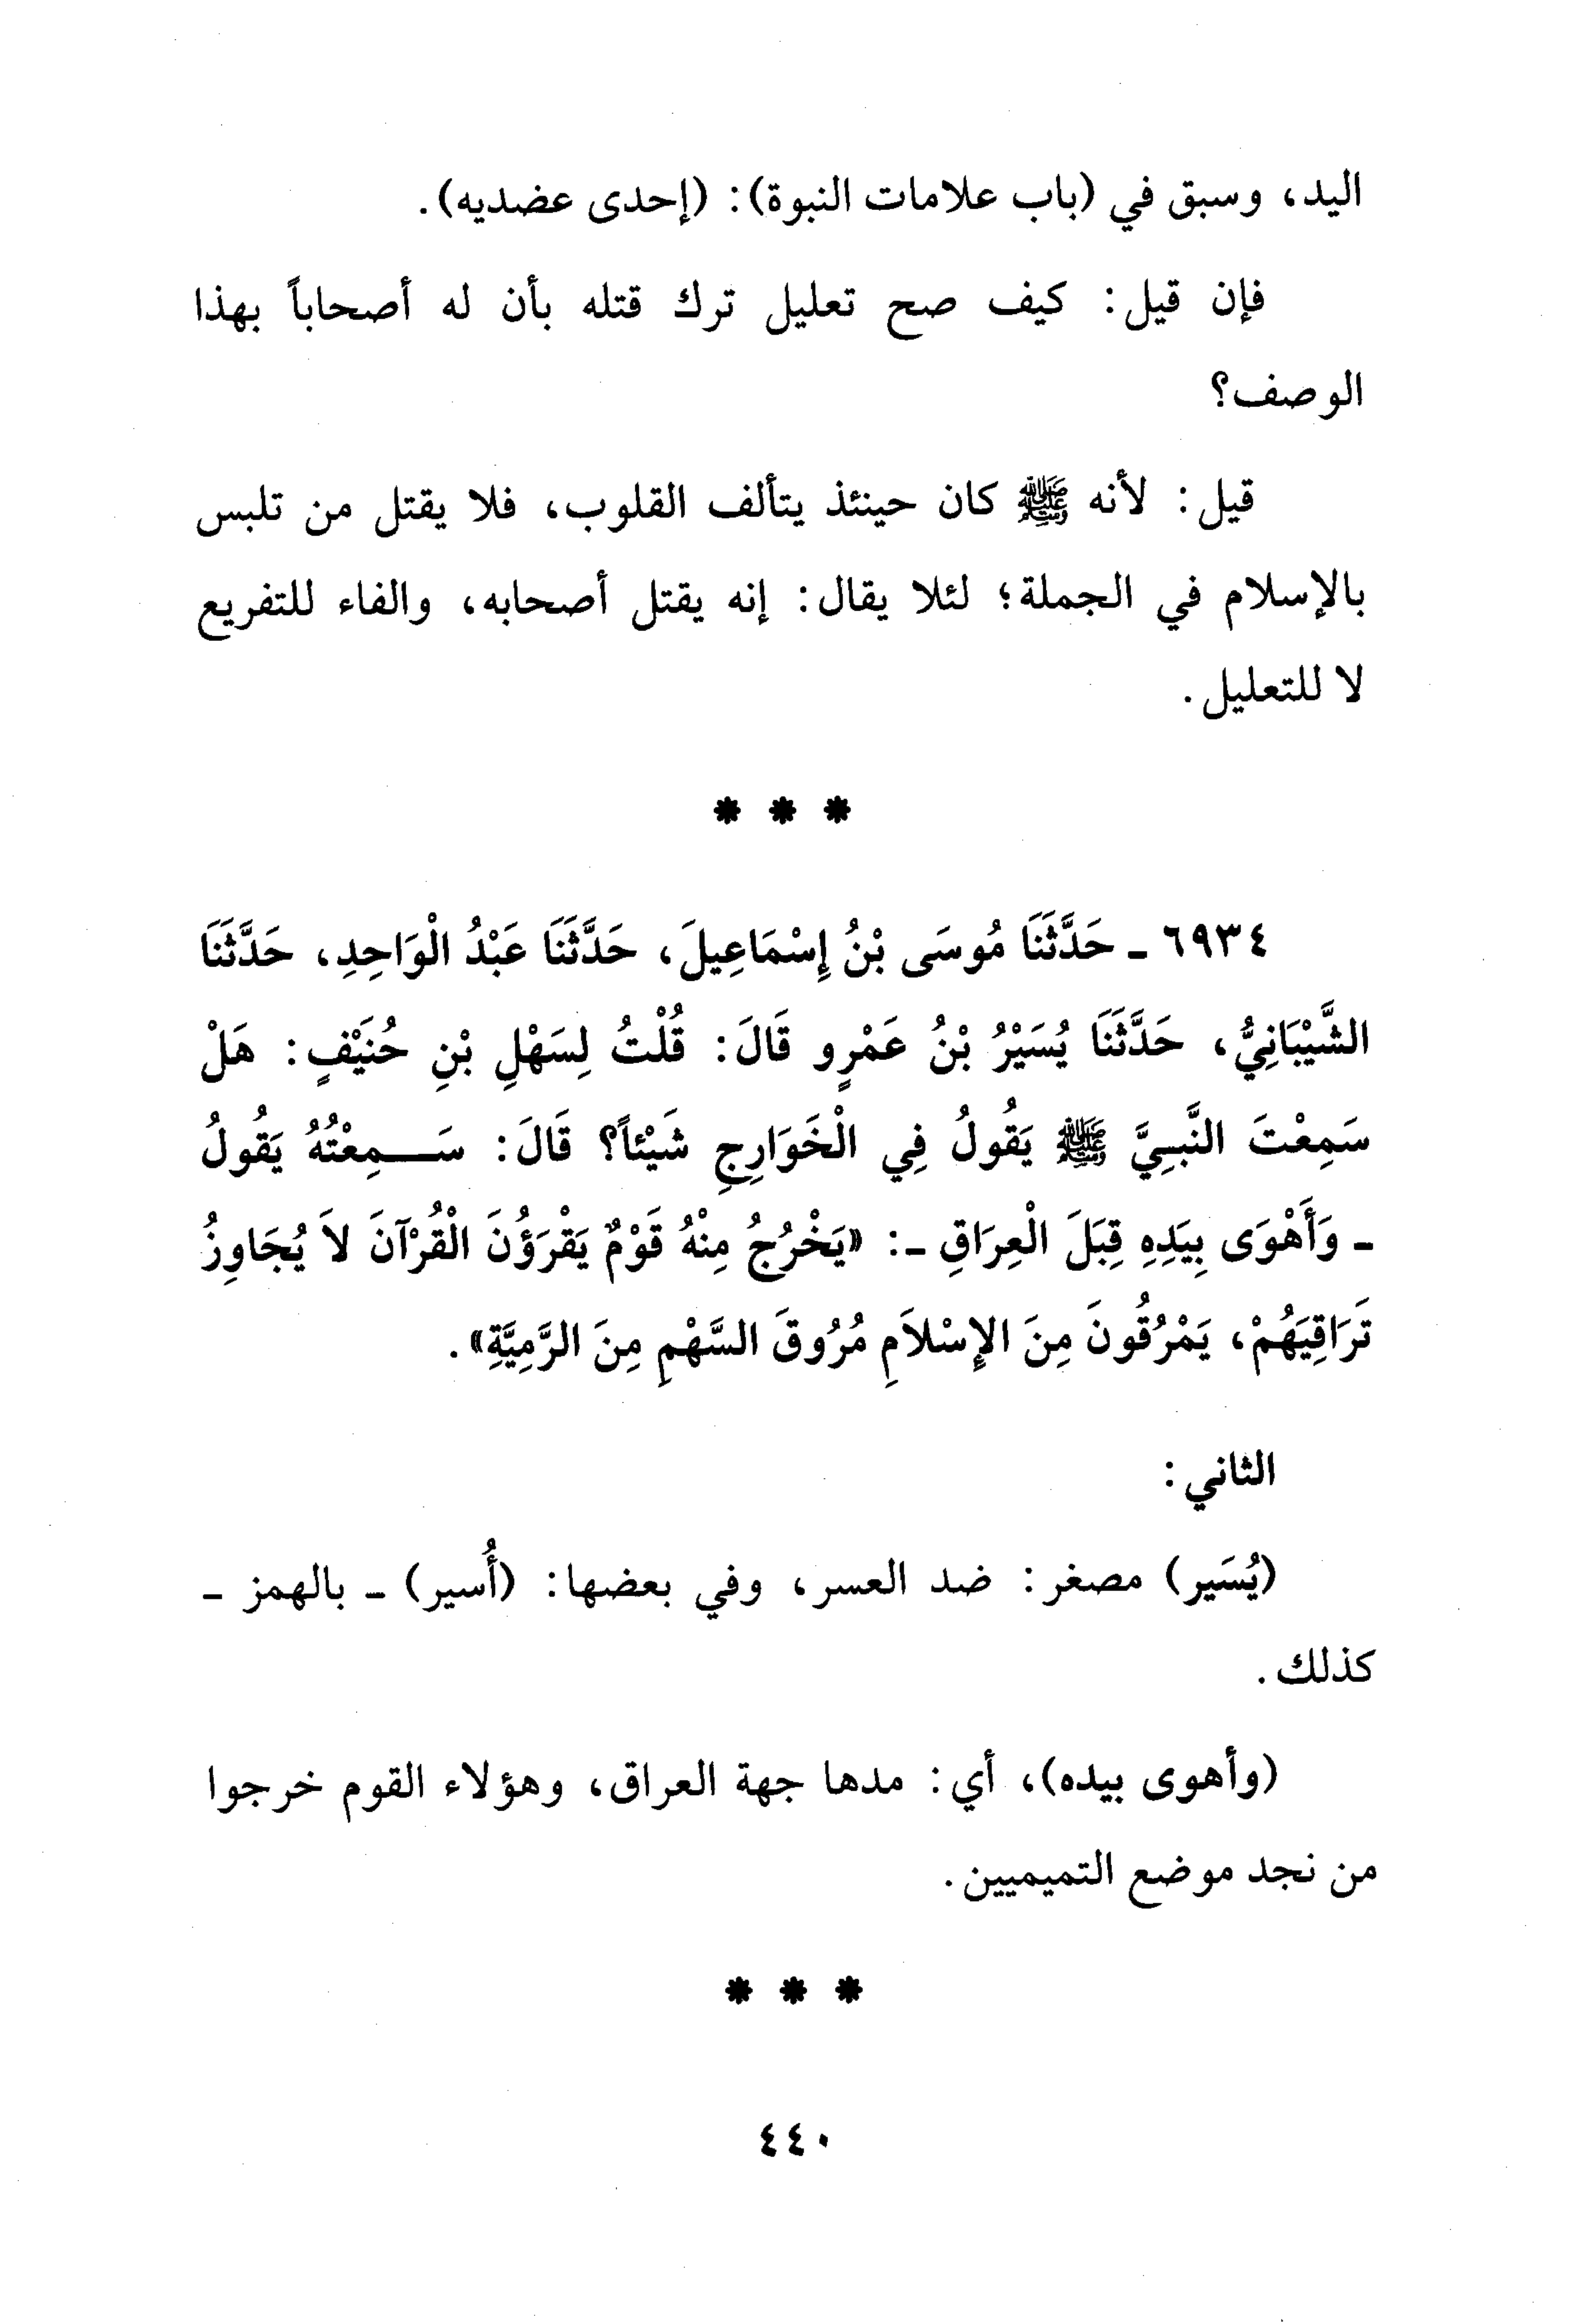 اليد، وسبق في (باب علامات النبوة): (إحدى عضديه).
فإن قيل: كيف صح تعليل ترك قتله بأن له أصحاباً بهذا
الوصف؟
قيل: لأنه ﷺ كان حينئذ يتألف القلوب، فلا يقتل من تلبس
بالإسلام في الجملة؛ لئلا يقال: إنه يقتل أصحابه، والفاء للتفريع
لا للتعليل.
* * *
٦٩٣٤ ـ حَدَّثَنَا مُوسَى بْنُ إِسْمَاعِيلَ، حَدَّثَنَا عَبْدُ الْوَاحِدِ، حَدَّثَنَا
الشَّيْبَانِيُّ، حَدَّثَنَا يُسَيْرُ بْنُ عَمْرٍو قَالَ: قُلْتُ لِسَهْلِ بْنِ حُنَيْفٍ: هَلْ
سَمِعْتَ النَّبِيَّ ﷺ يَقُولُ فِي الْخَوَارِجِ شَيْئاً؟ قَالَ: سَـمِعْتُهُ يَقُولُ
ـ وَأَهْوَى بِيَدِهِ قِبَلَ الْعِرَاقِ ـ: «يَخْرُجُ مِنْهُ قَوْمٌ يَقْرَؤُنَ الْقُرْآنَ لاَ يُجَاوِزُ
تَرَاقِيَهُمْ، يَمْرُقُونَ مِنَ الإِسْلاَمِ مُرُوقَ السَّهْمِ مِنَ الرَّمِيَّةِ».
الثاني:
(يُسَير) مصغر: ضد العسر، وفي بعضها: (أُسير) ـ بالهمز ـ
كذلك.
(وأهوى بيده)، أي: مدها جهة العراق، وهؤلاء القوم خرجوا
من نجد موضع التميميين.
* * *
٤٤٠